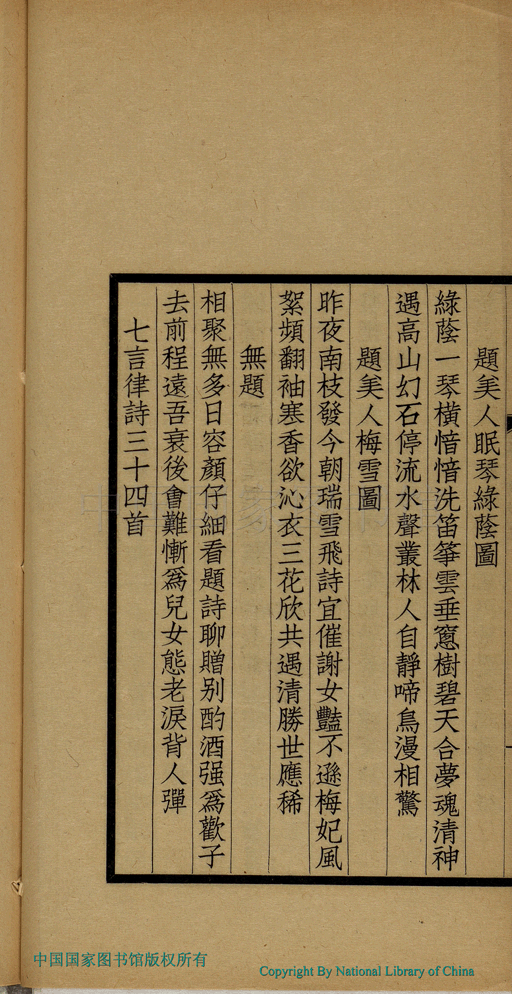 題美人眠琴綠蔭圖
綠蔭一琴橫愔愔洗笛箏雲垂窻樹碧天合夢魂清神
遇高山幻石停流水聲叢林人自靜啼鳥漫相驚
題美人梅雪圖
昨夜南枝發今朝瑞雪飛詩宜催謝女豔不遜梅妃風
絮頻翻袖寒香欲沁衣三花欣共遇清勝世應稀
無題
相聚無多日容顏仔細看題詩聊贈别酌酒强爲歡子
去前程遠吾衰後會難慚爲兒女態老淚背人彈
七言律詩三十四首
中国国家图书馆版权所有
Copyright By National Library of China